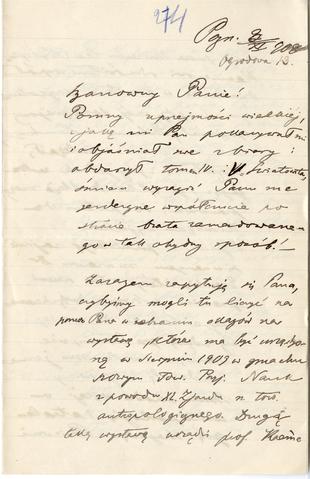 274
Pzn. 908
Ogrodowa 13.
Szanowny Panie!
Pomny uprzejmości wielkiej,
z jaką mi Pan pokazywał
i objaśniał swe zbiory i
obdarzył tomem IV. i V. Światowita,
śmiem wyrazić Panu me
serdeczne współczucie po
stracie brata zamordowane-
go w tak ohydny sposób! —
Zarazem zapytuję się Pana,
czybyśmy mogli tu liczyć na
pomoc Pana w zebraniu okazów na
wystawę, która ma być urządzo-
ną w Sierpniu 1909 w gmachu
nowym tow. Prz. Nauk
z powodu XL. Zjazdu n. tow.
antropologicznego. Drugą
taką wystawę urządzi prof.